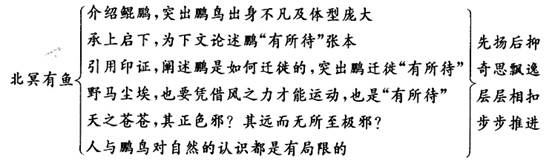 北冥有鱼
介绍鲲鹏,突出鹏鸟出身不凡及体型庞大
承上启下,为下文论述鹏“有所待”张本
引用印证,阐述鹏是如何迁徙的,突出鹏迁徙“有所待”
野马尘埃,也要凭借风之力才能运动,也是“有所待”
天之苍苍,其正色邪?其远而无所至极邪?
人与鹏鸟对自然的认识都是有局限的
先扬后抑
奇思飘逸
层层相扣
步步推进